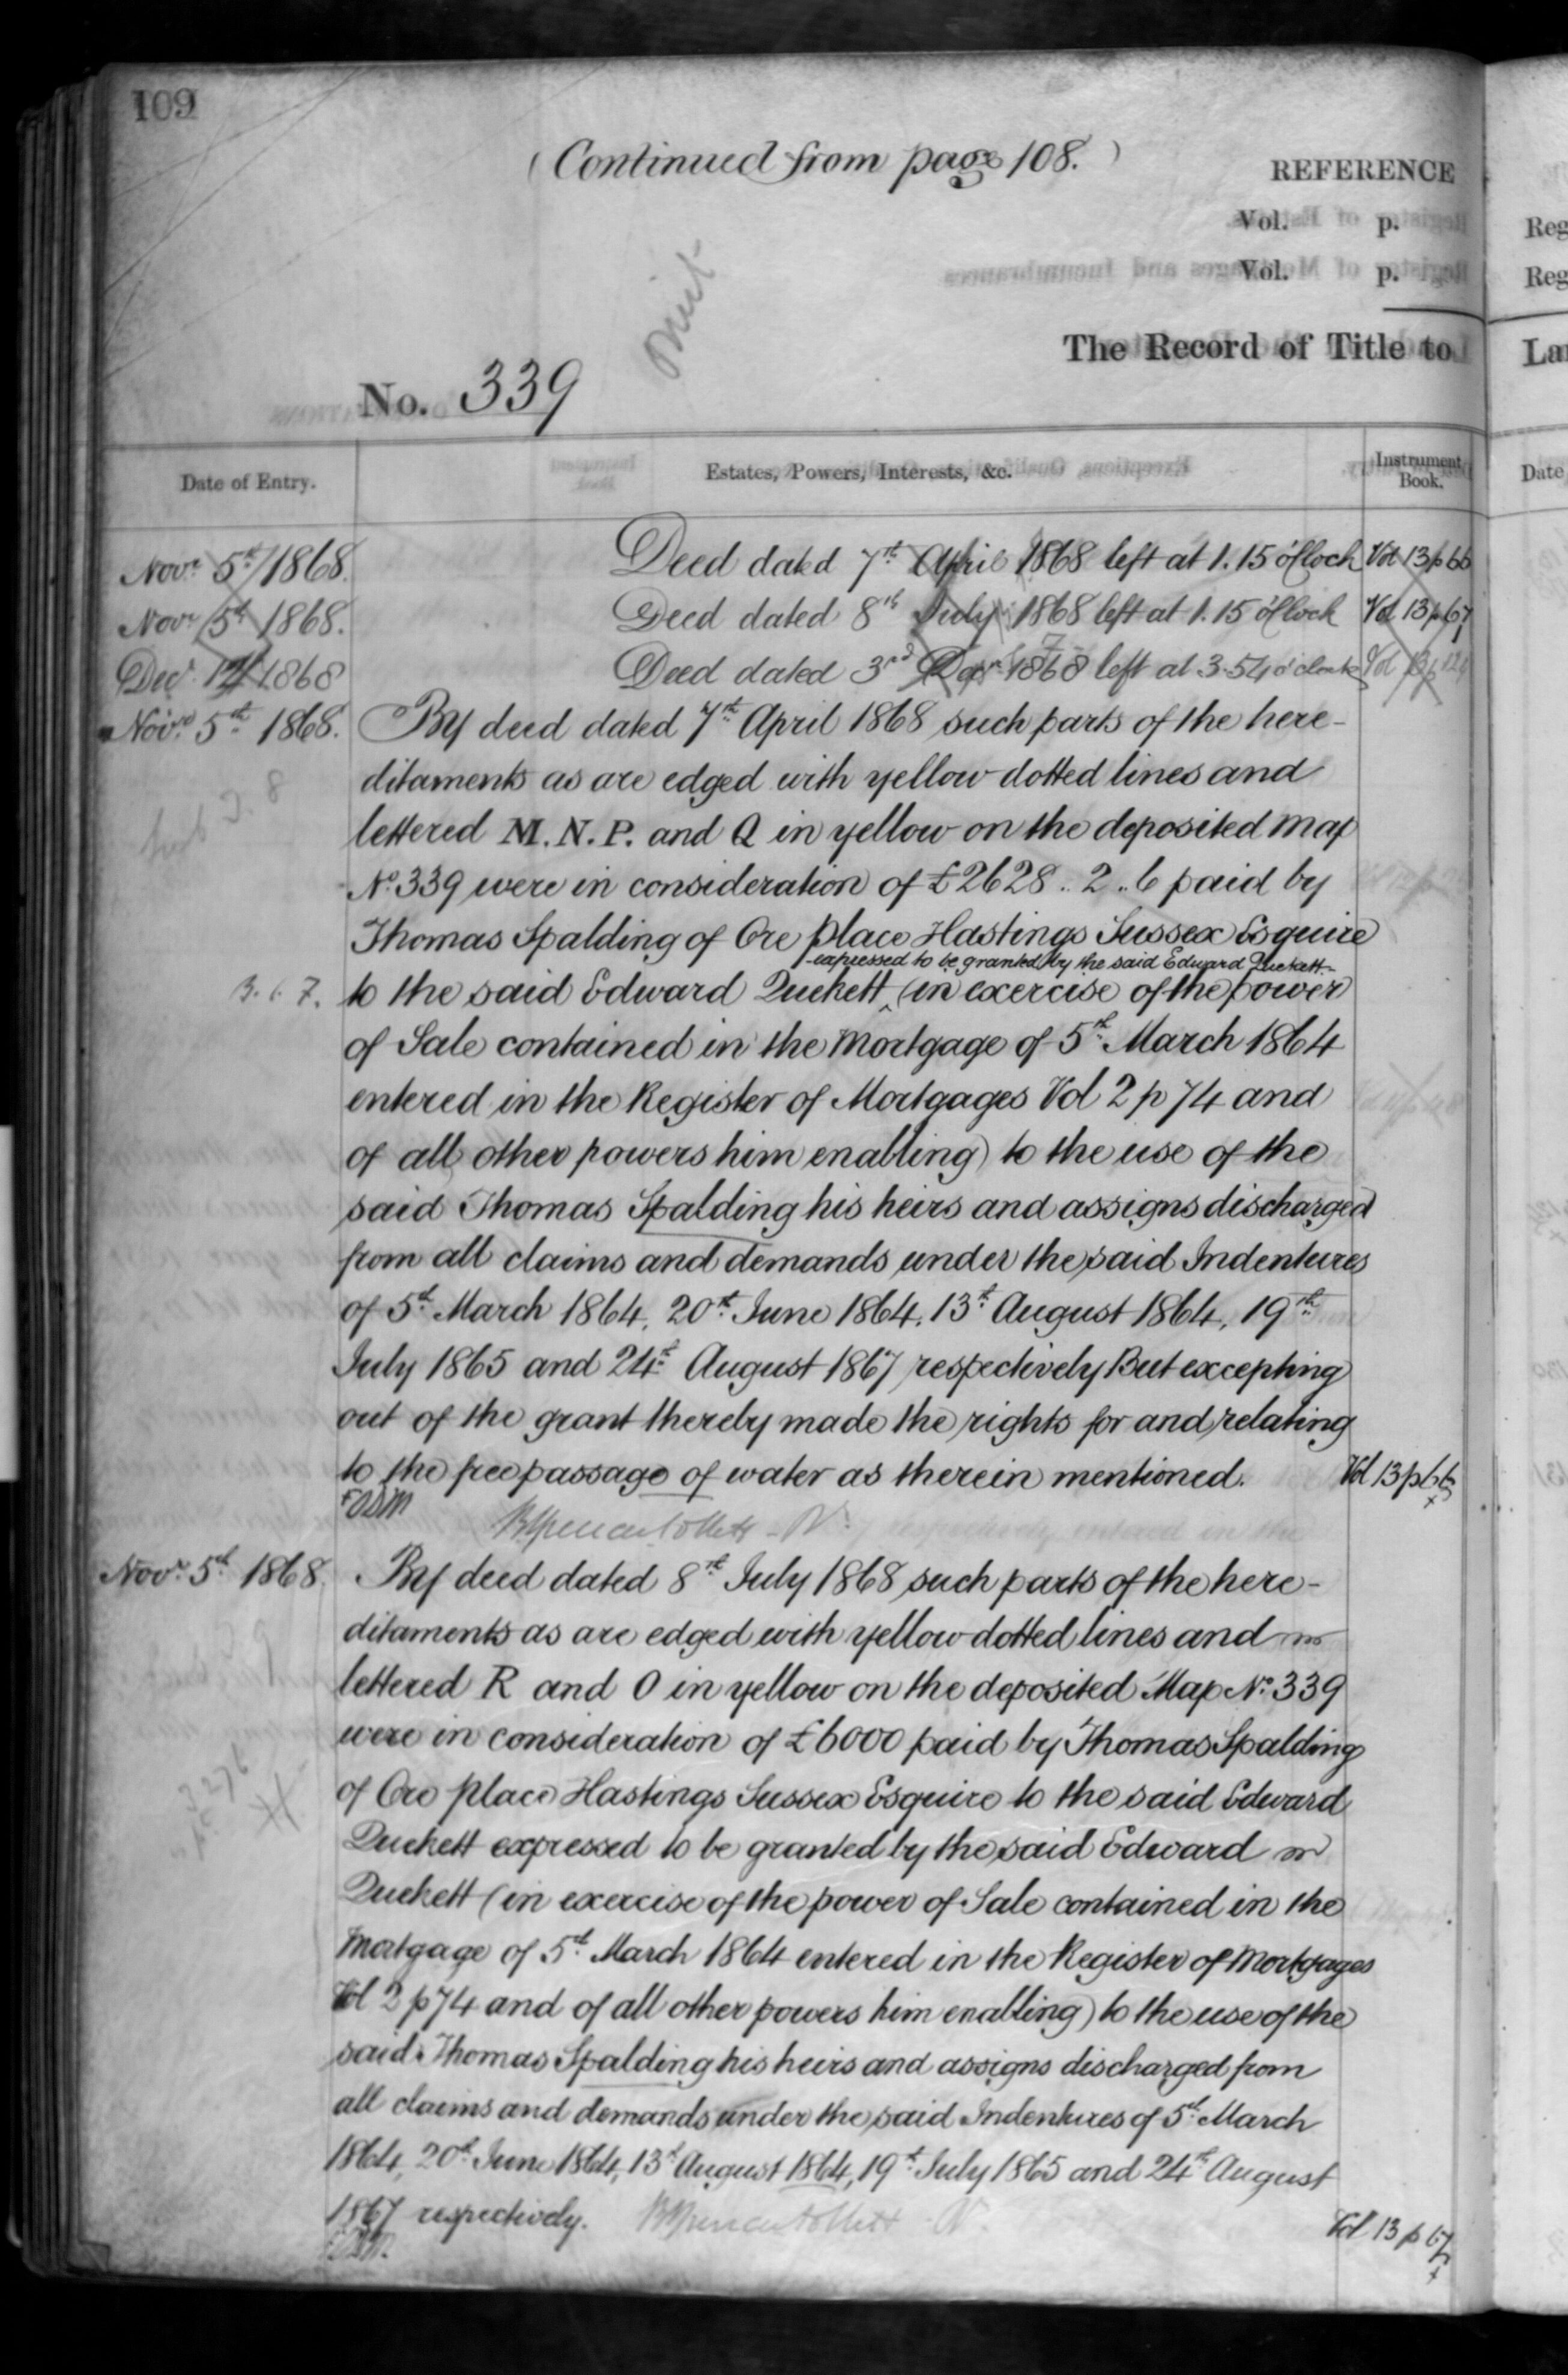 109
(Continued from page 108.)
REFERENCE
Vol. p.
Vol. p.
Omit
The Record of Title to
No. 339
Date of Entry. Estates, Powers, Interests, &c. Instrument Book.
Novr. 5th 1868. Deed dated 7th April 1868 left at 1.15 o'Clock Vol 13 p 66
Novr. 5th 1868. Deed dated 8th July 1868 left at 1.15 o'Clock Vol 13 p 67
Decr. 14 1868 Deed dated 3rd 1868 left at 3.54 o'clock Vol 13 p
Novr. 5th 1868. By deed dated 7th April 1868 such parts of the here-
ditaments as are edged with yellow dotted lines and
lettered M. N. P. and Q in yellow on the deposited Map
No. 339 were in consideration of £2628..2..6 paid by
Thomas Spalding of Ore place Hastings Sussex Esquire
expressed to be granted by the said Edward Duckett
to the said Edward Duckett (in exercise of the power
of Sale contained in the Mortgage of 5th March 1864
entered in the Register of Mortgages Vol 2 p 74 and
of all other powers him enabling) to the use of the
said Thomas Spalding his heirs and assigns discharged
from all claims and demands under the said Indentures
of 5th March 1864, 20th June 1864, 13th August 1864, 19th
July 1865 and 24th August 1867 respectively But excepting
out of the grant thereby made the rights for and relating
to the free passage of water as therein mentioned. Vol 13 p 66
Novr. 5th 1868. By deed dated 8th July 1868 such parts of the here-
ditaments as are edged with yellow dotted lines and
lettered R and O in yellow on the deposited Map No. 339
were in consideration of £6000 paid by Thomas Spalding
of Ore place Hastings Sussex Esquire to the said Edward
Duckett expressed to be granted by the said Edward
Duckett (in exercise of the power of Sale contained in the
Mortgage of 5th March 1864 entered in the Register of Mortgages
Vol 2 p 74 and of all other powers him enabling) to the use of the
said Thomas Spalding his heirs and assigns discharged from
all claims and demands under the said Indentures of 5th March
1864, 20th June 1864, 13th August 1864, 19th July 1865 and 24th August
1867 respectively. Vol 13 p 67
Reg
Reg
Date